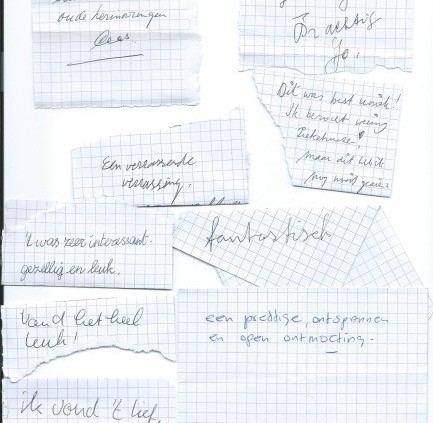 oude herinneringen
Cees.
Prachtig
Jo.
Dit was best uniek!
Ik bezocht weinig
Ziekenhuise,
maar dit heb ik
nog nooit gezien
Een verrassende
verrassing.
't was zeer interessant.
gezellig en leuk.
fantastisch
Vond het heel
leuk!
een prettige, ontspannen
en open ontmoeting.
ik vond 't lief,